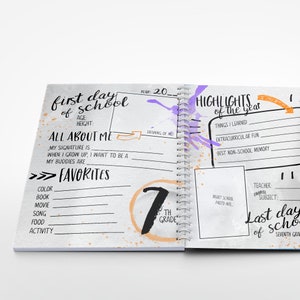 first day
of school
YEAR: 20
AGE:
HEIGHT:
ALL ABOUT ME
DRAWING OF ME
MY SIGNATURE IS
WHEN I GROW UP, I WANT TO BE A
MY BUDDIES ARE
>>> FAVORITES
COLOR
BOOK
MOVIE
SONG
FOOD
ACTIVITY
7TH
GRADE
HIGHLIGHTS
of the year
THINGS I LEARNED
EXTRACURRICULAR FUN
BEST NON-SCHOOL MEMORY
TEACHER
favorite
SUBJECT:
INSERT SCHOOL
PHOTO HERE
Last day
of school
SEVENTH GRADE